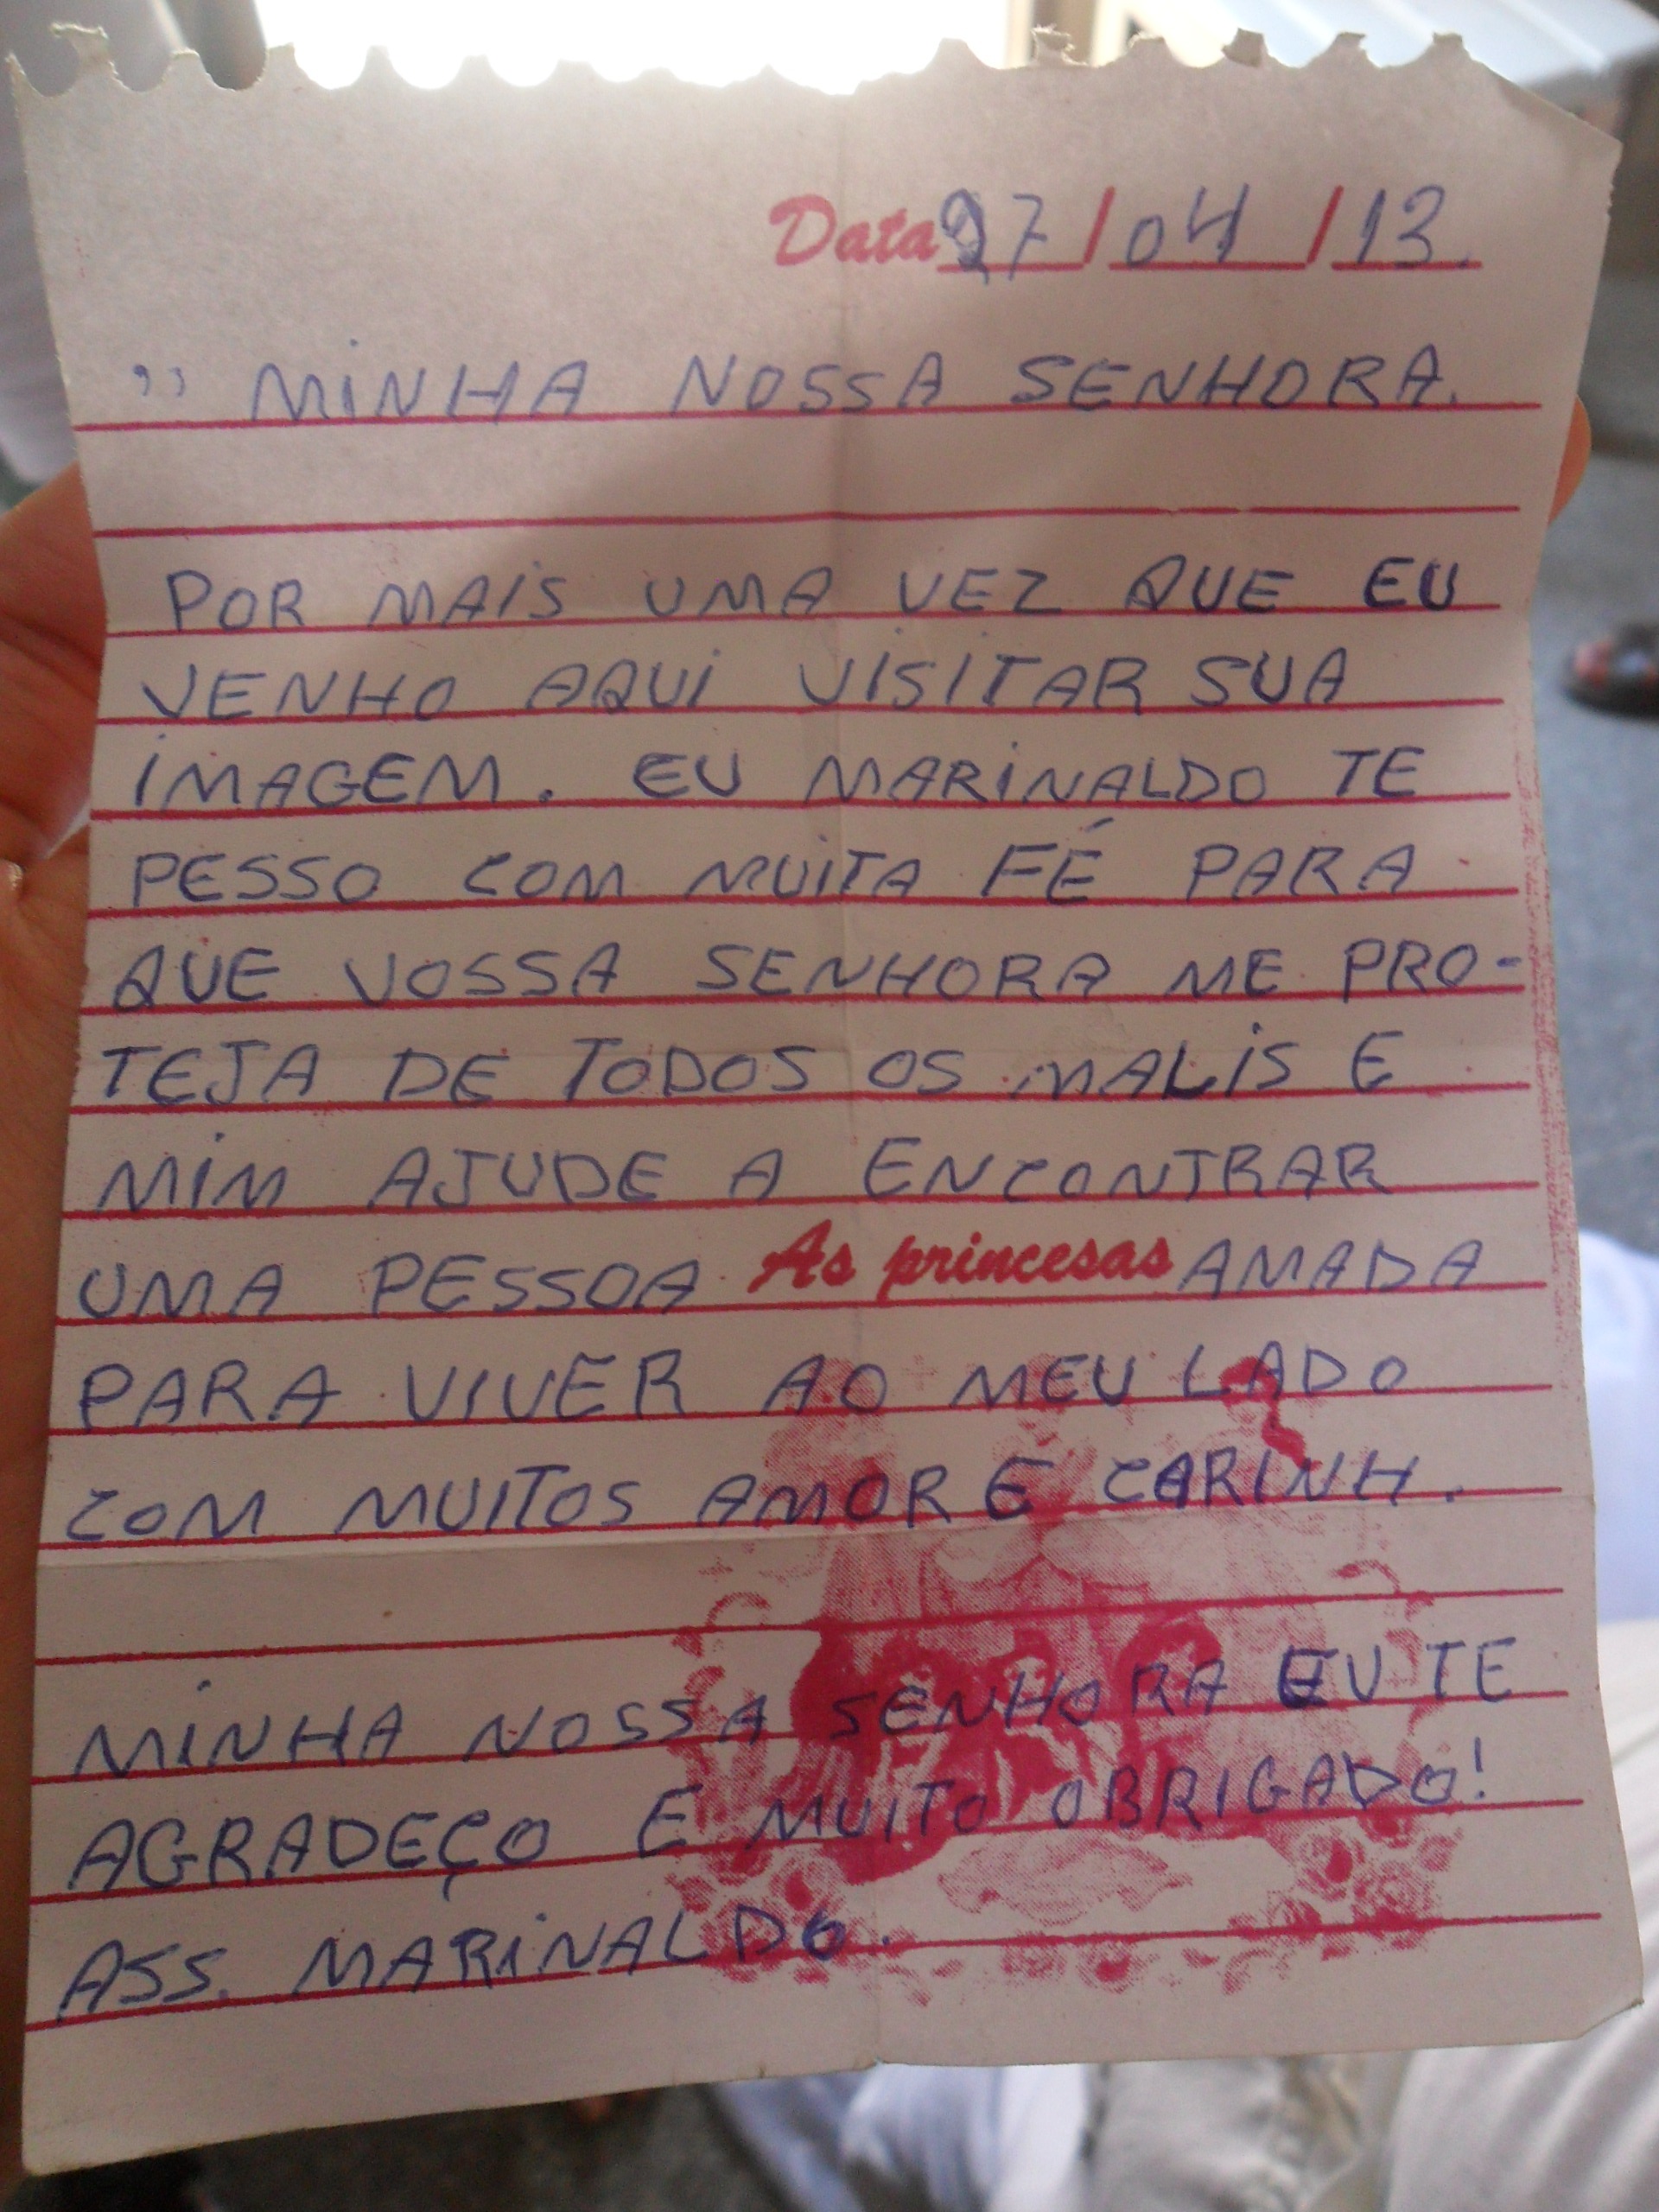 Data 27/04/13.
" MINHA NOSSA SENHORA.
POR MAIS UMA VEZ QUE EU
VENHO AQUI VISITAR SUA
IMAGEM. EU MARINALDO TE
PESSO COM MUITA FÉ PARA
QUE VOSSA SENHORA ME PRO-
TEJA DE TODOS OS MALIS E
MIM AJUDE A ENCONTRAR
UMA PESSOA As princesas AMADA
PARA VIVER AO MEU LADO
COM MUITOS AMOR E CARINH.
MINHA NOSSA SENHORA EU TE
AGRADEÇO E MUITO OBRIGADO!
ASS. MARINALDO.